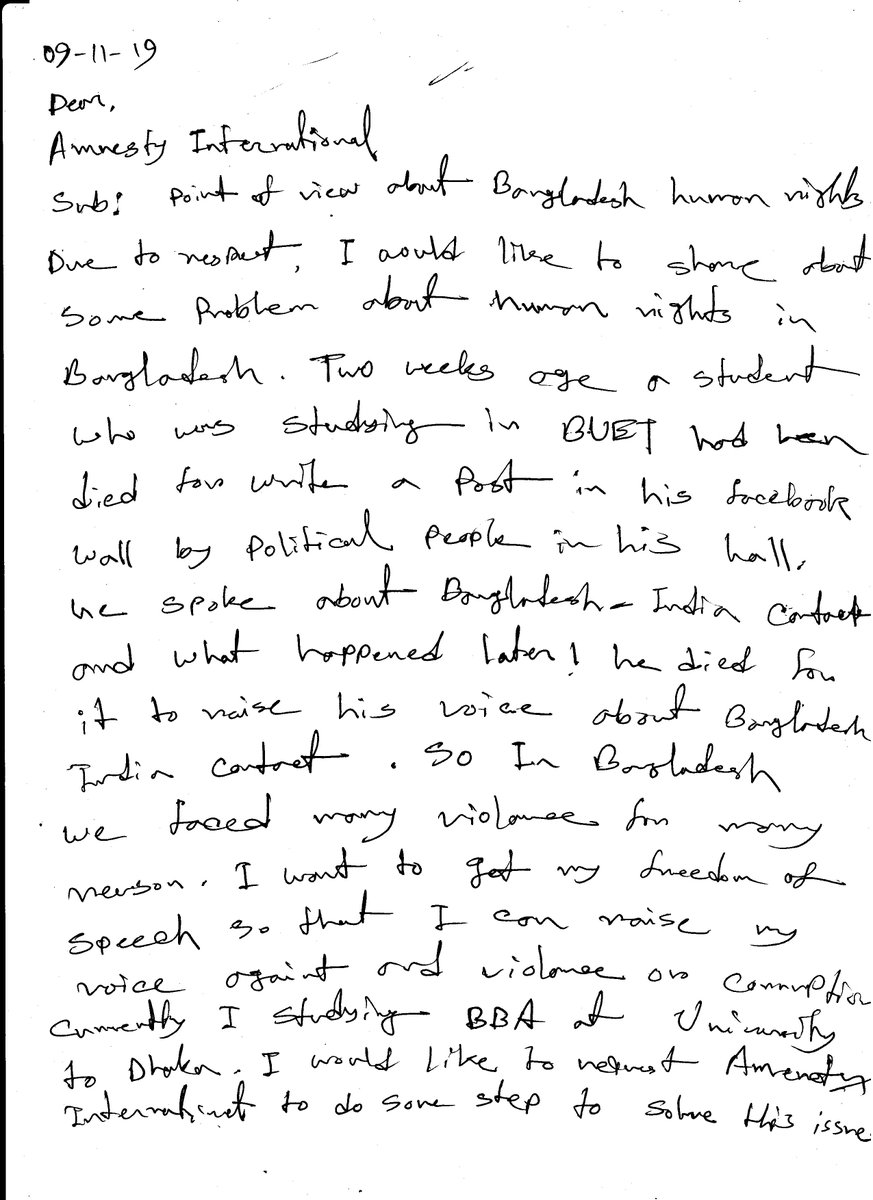 09-11-19
Dear,
Amnesty International
Sub: Point of view about Bangladesh human rights
Due to respect, I would like to share about
some Problem about human rights in
Bangladesh. Two weeks age a student
who was studying in BUET had been
died for write a Post in his facebook
wall by Political People in his hall.
he spoke about Bangladesh - India Contact
and what happened later! he died for
it to raise his voice about Bangladesh
India Contact. So In Bangladesh
we faced many violance for many
reason. I want to get my freedom of
Speech so that I can raise my
voice againt and violance or Corruption
Currently I studying BBA at University
to Dhaka. I would like to request Amnesty
Internatinal to do some step to solve this issue